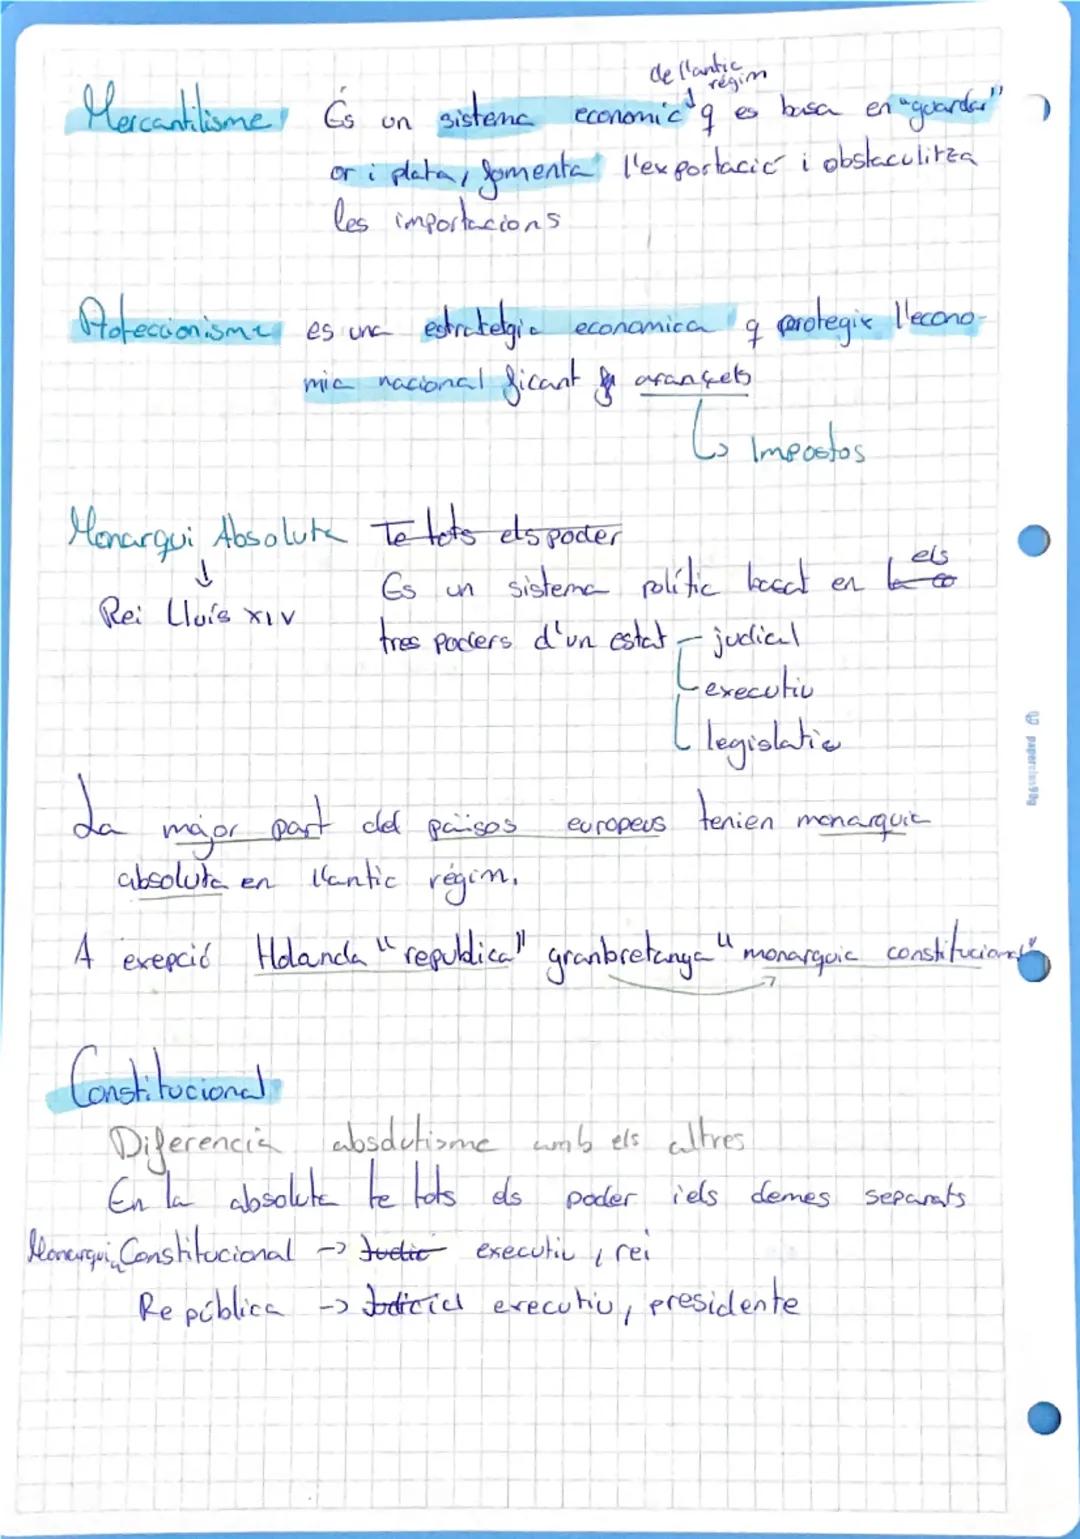 de l'antic
régim
Mercantilisme És un sistema economic q es basa en "guardar"
or i plata, fomenta l'exportació i obstaculitza
les importacions
Proteccionisme es una estratelgia economica q protegix l'econo-
mia nacional ficant aranzels
↳ Impostos
Monarqui Absoluta Te tots els poder
És un sistema polític basat en els
Rei Lluís XIV
tres poders d'un estat - judical
- executiu
legislatiu
La major part del països europeus tenien monarquia
absoluta en l'antic régim.
A exepció Holanda "republica" granbretanya "monarquia constitucional"
Constitucional
Diferencia absolutisme amb els altres
En la absoluta te tots els poder i els demes separats
Monarqui Constitucional -> Judic executiu, rei
República -> Judicial executiu, presidente
papereles90g